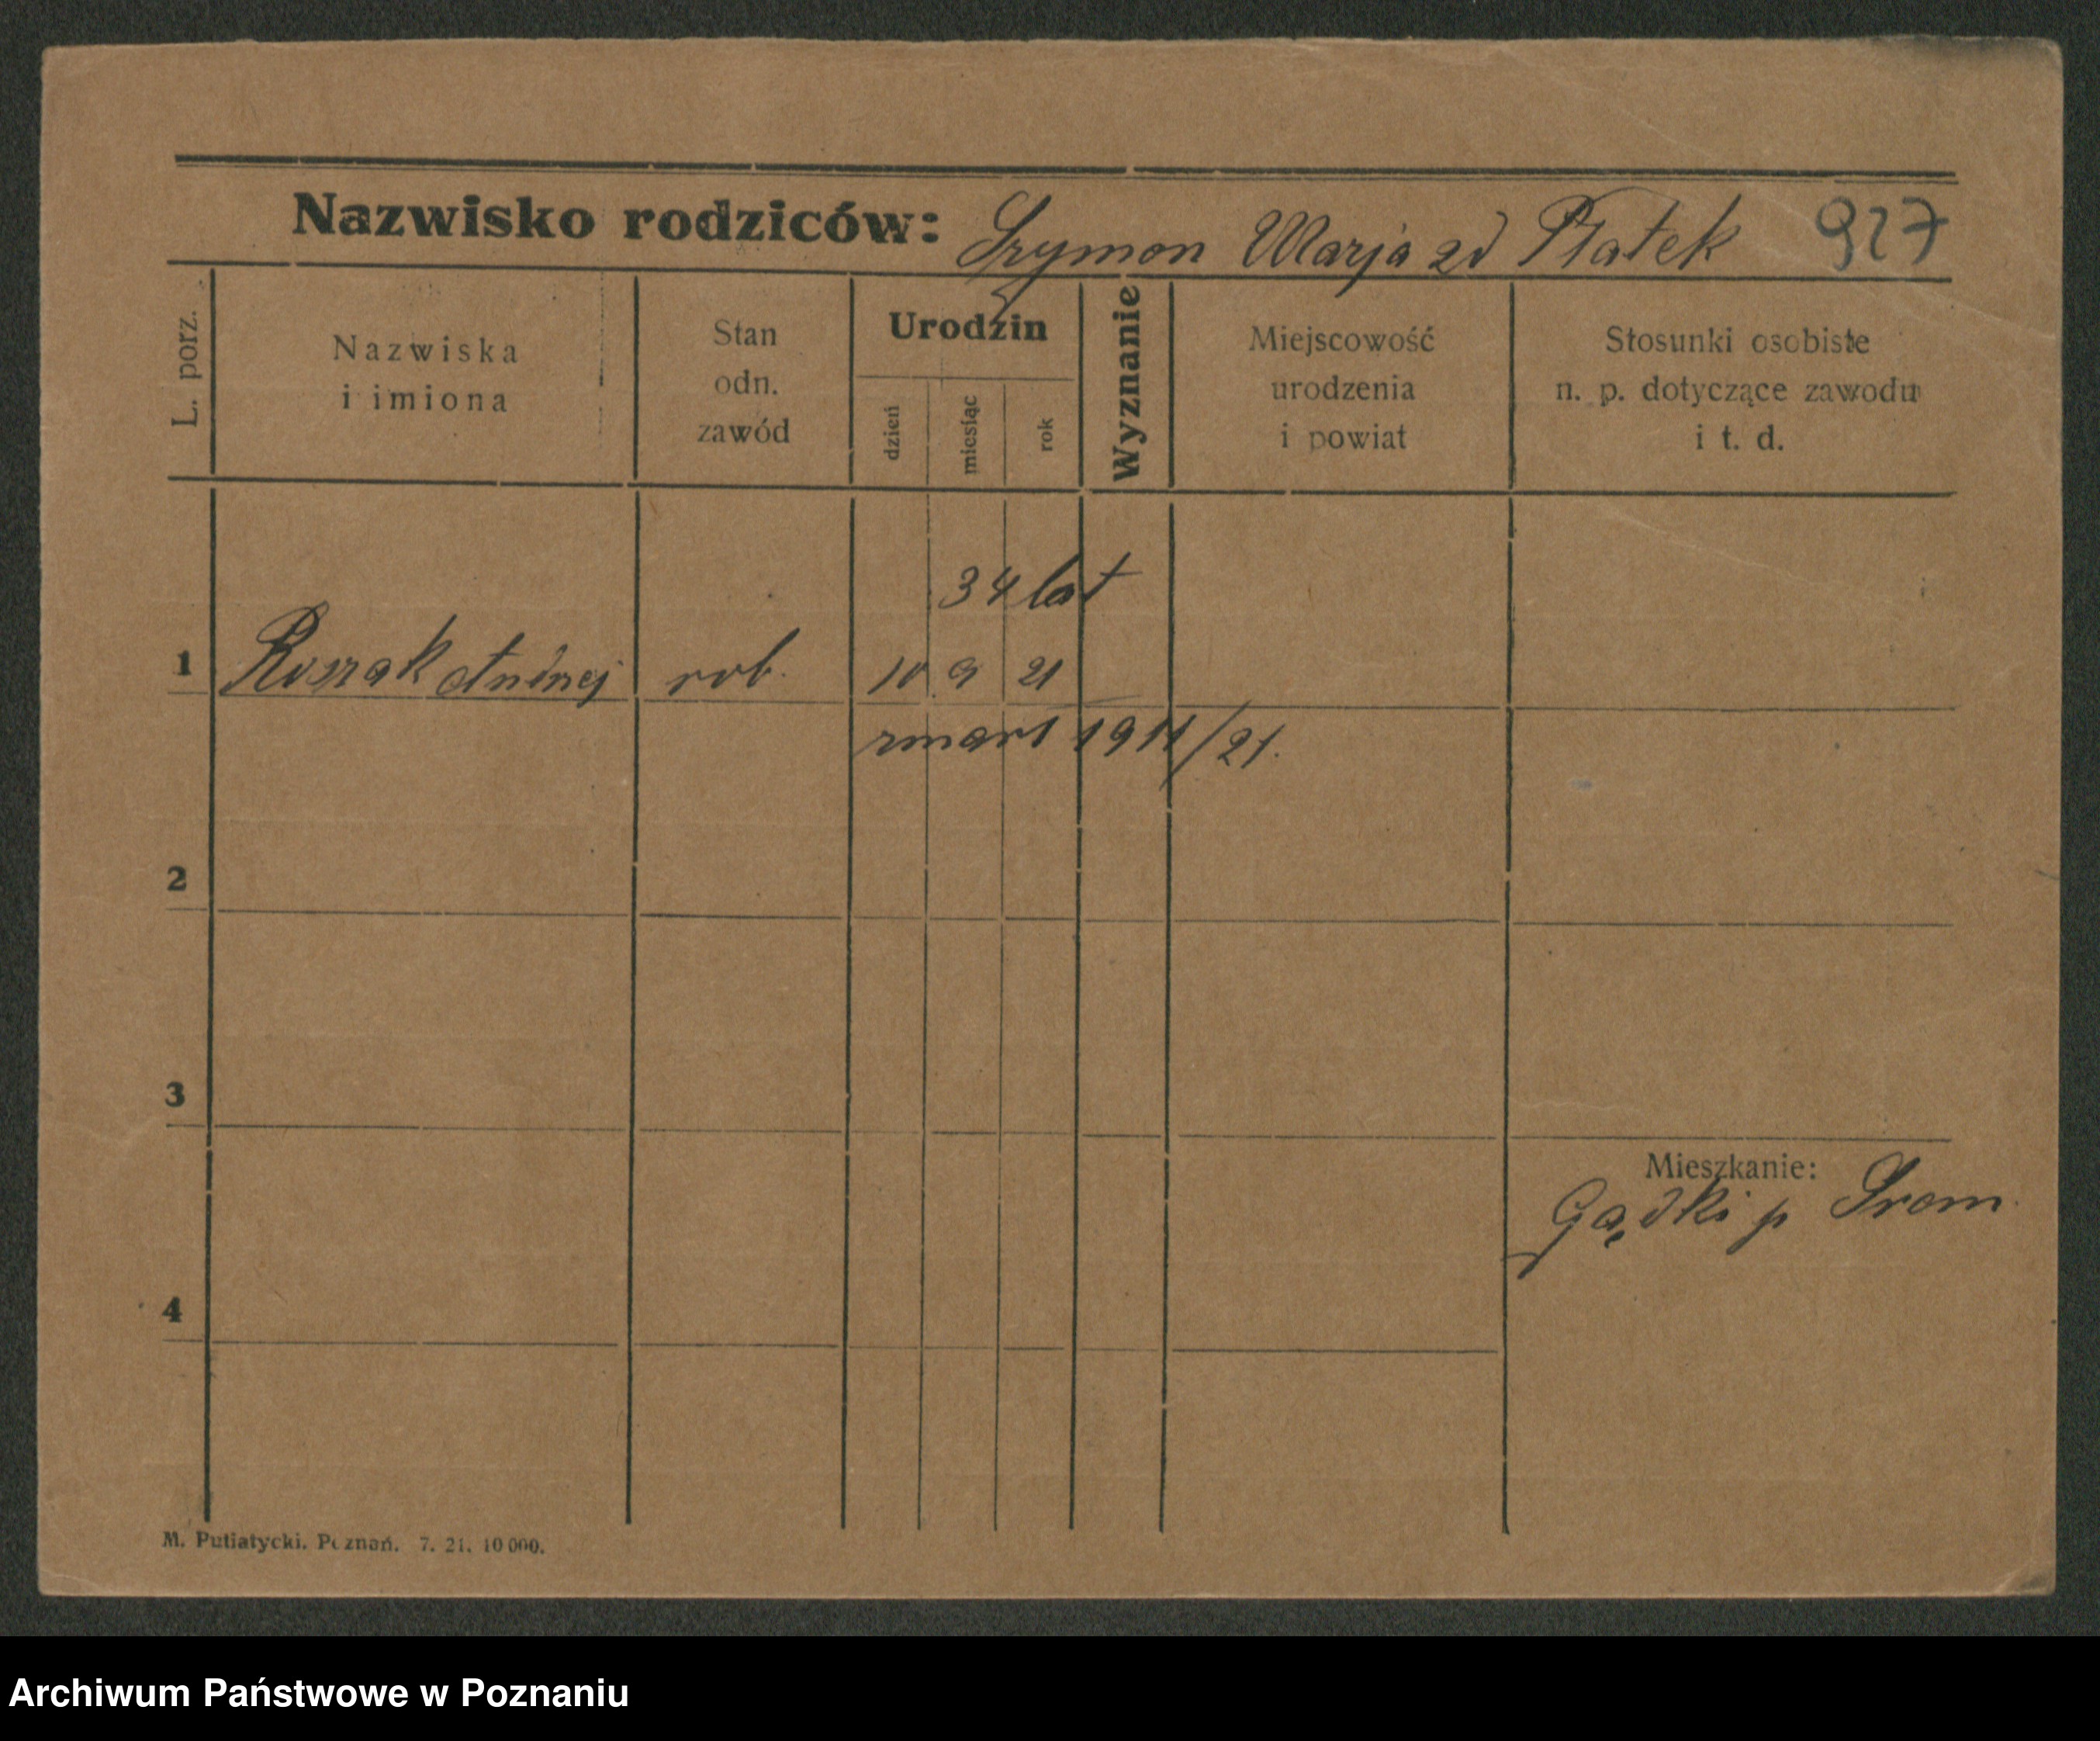 Nazwisko rodziców: Szymon Marja zd Płatek 927
L. porz.
Nazwiska
i imiona
Stan
odn.
zawód
Urodzin
dzień
miesiąc
rok
Wyznanie
Miejscowość
urodzenia
i powiat
Stosunki osobiste
n. p. dotyczące zawodu
i t. d.
34 lat
1 Roszak Andrzej rob. 10 9 21
zmarł 1911/21.
2
3
Mieszkanie:
Gądki p Srem
4
M. Putiatycki. Poznań. 7. 21. 10 000.
Archiwum Państwowe w Poznaniu